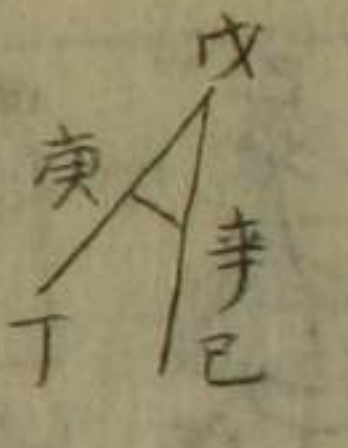 戊
庚
辛
丁
己